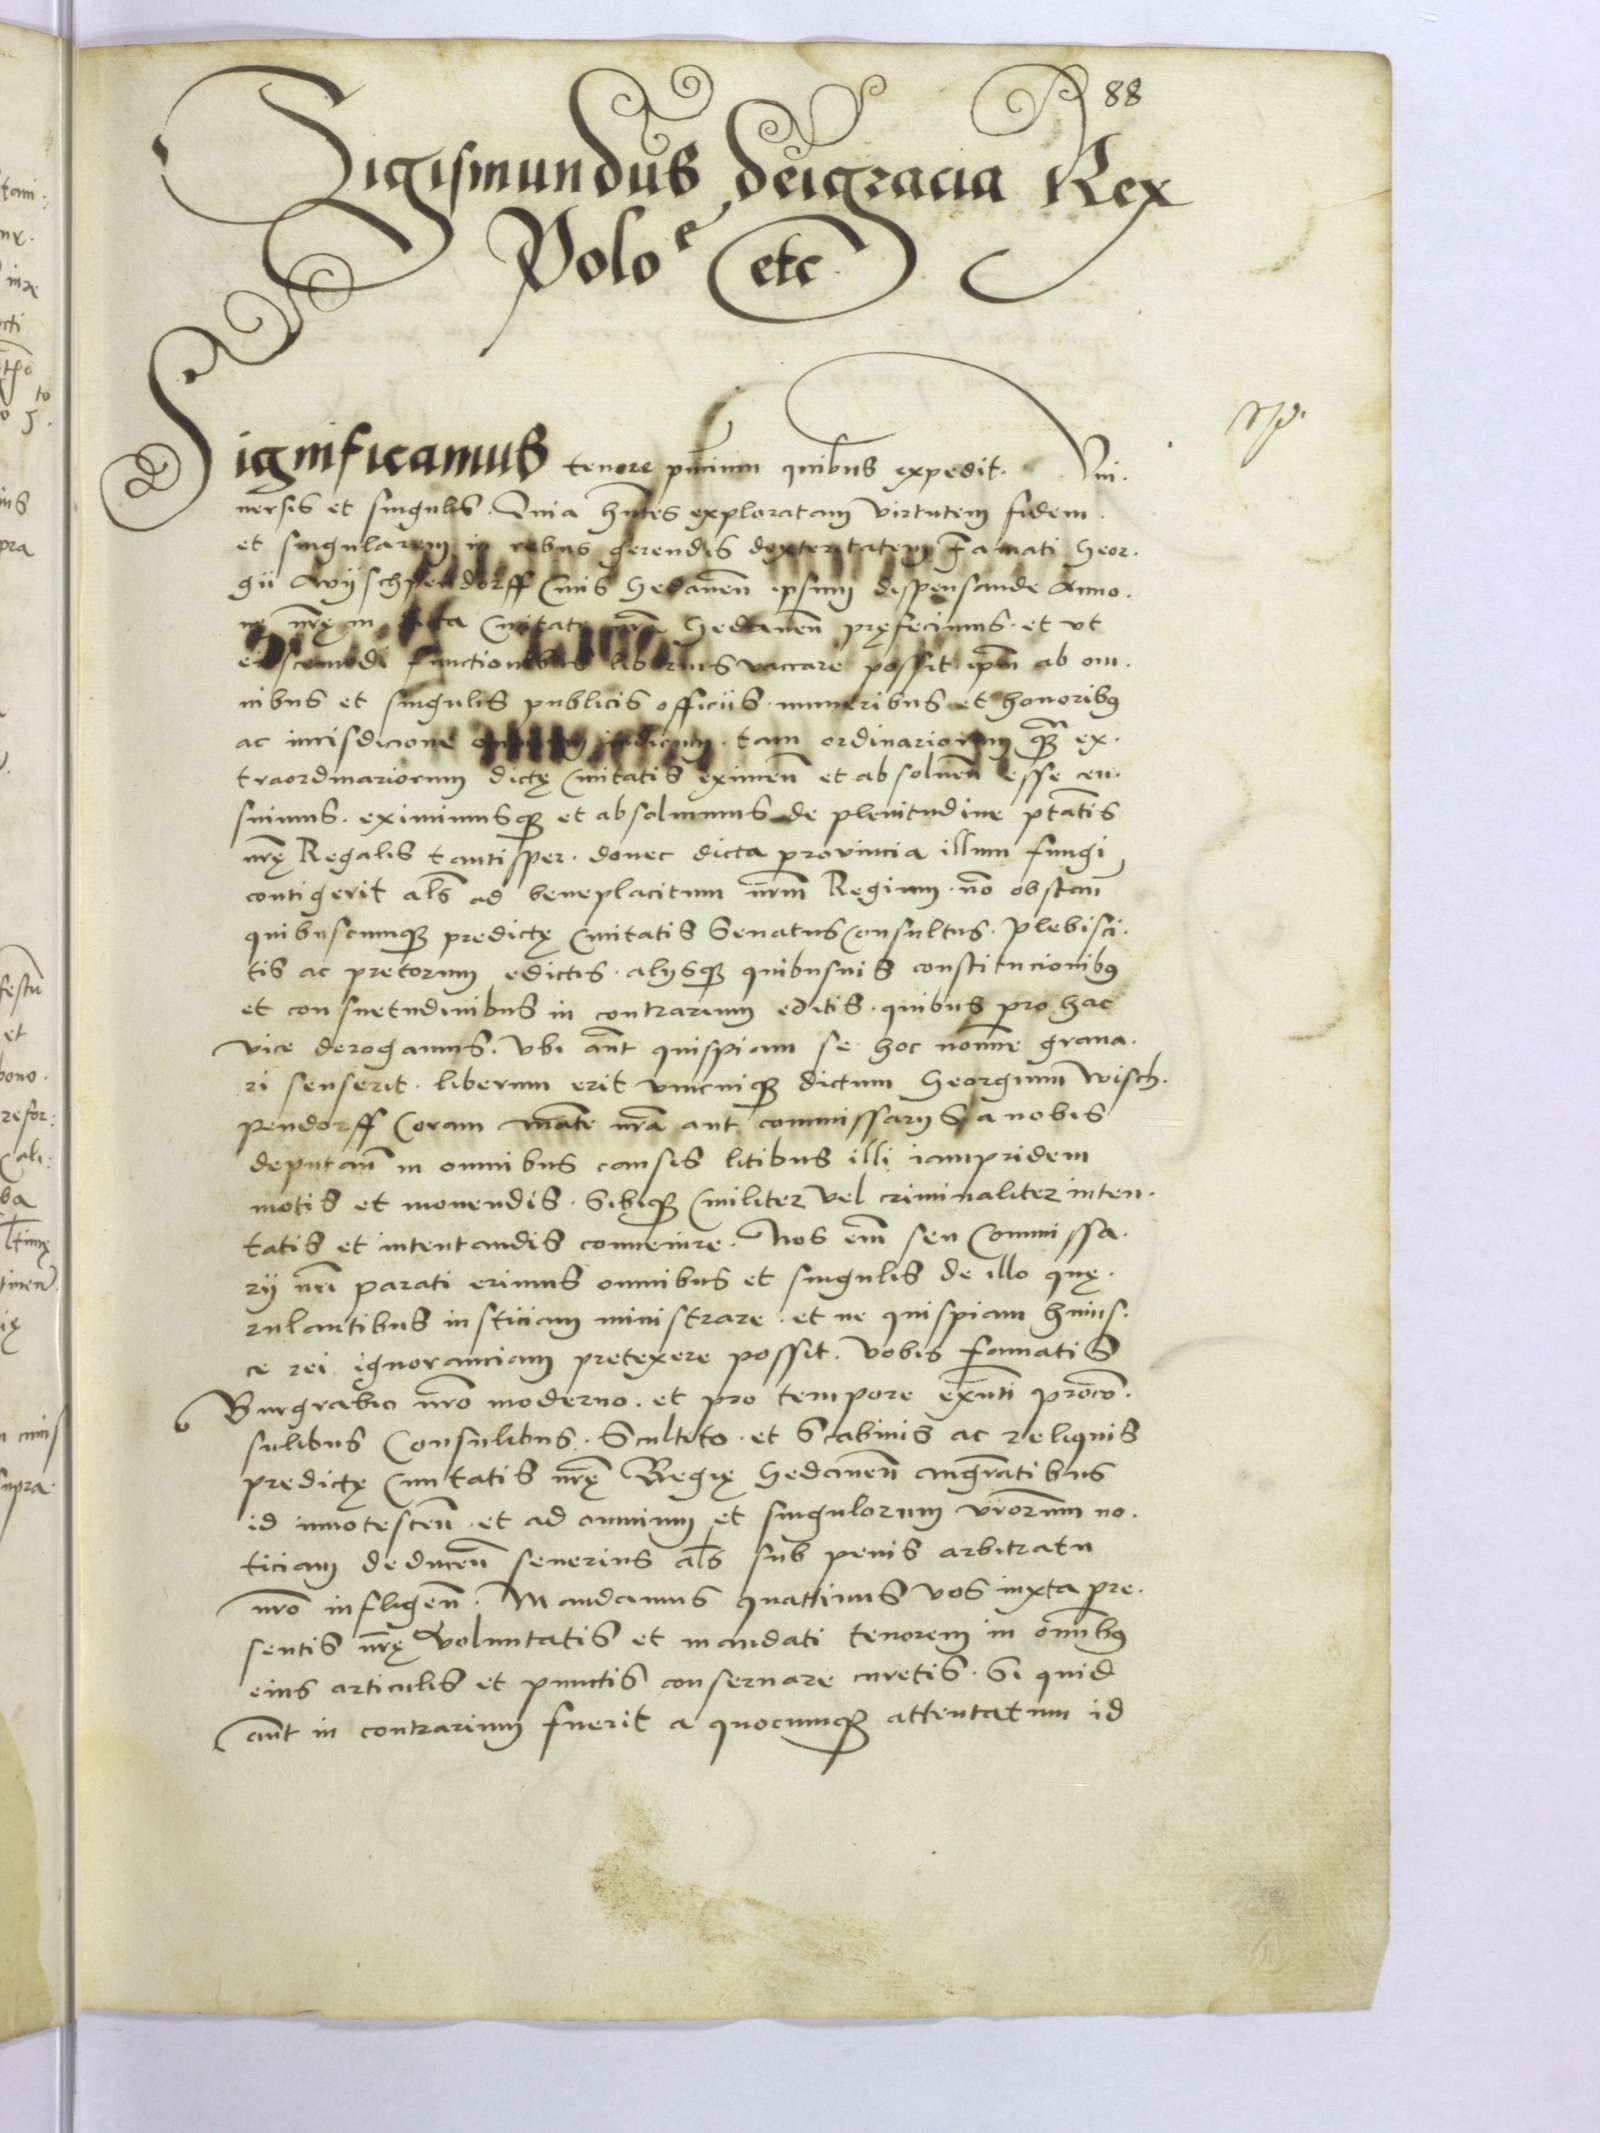 88
Sigismundus deigracia Rex
Poloe etc
Significamus tenore pntium quibus expedit. Vni.
uersis et singulis. Quia hntes exploratam virtutem fidem
et singularem in rebus gerendis dexteritatem Famati Geor.
gii Wyschpendorff Ciuis Gedanen ipsum dispensande Anno.
ne nrę in Ciuitate nra Gedanen pręfecimus. et vt
functionibus liberius vaccare possit. ipm ab om.
nibus et singulis publicis officiis. muneribus et honoribus
ac iurisdicione omnium iudicum. tam ordinariorum quam ex.
traordinariorum dictę Ciuitatis eximen et absoluen esse cen.
suimus. eximimusque et absoluimus de plenitudine ptatis
nrę Regalis tantisper. donec dicta prouincia illum fungi
contigerit als ad beneplacitum nrm Regium. no obstan
quibuscumque predictę Ciuitatis Senatus Consultus. Plebisci.
tis ac pretorum edictis. alijsque quibusuis constitucionibus
et consuetudinibus in contrarium editis. quibus pro hac
vice derogamus. Vbi aut quispiam se hoc nomine graua.
ri senserit. liberum erit vnicuique dictum Georgium Wisch.
pendorff Coram Mate nra aut commissarijs a nobis
deputan in omnibus causis litibus illi iampridem
motis et mouendis. Sibique Ciuiliter vel criminaliter inten.
tatis et intentandis conuenire. Nos em seu Commissa.
rij nri parati erimus omnibus et singulis de illo quę.
rulantibus iusticiam ministrare. et ne quispiam huius.
ce rei ignoranciam pretexere possit. Vobis Famatis
Burgrabio nro moderno. et pro tempore exnti proco.
sulibus Consulibus. Sculteto. et Scabinis ac reliquis
predictę Ciuitatis nrę Regię Gedanen magratibus
id innotescen. et ad omnium et singulorum vrorum no.
ticiam deducen seuerius als sub penis arbitratu
nro infligen. Mandamus quattinus vos iuxta pre.
sentis nrę Voluntatis et mandati tenorem in omnibus
eius articulis et punctis conseruare curetis. Si quid
aut in contrarium fuerit a quocumque attentatum id